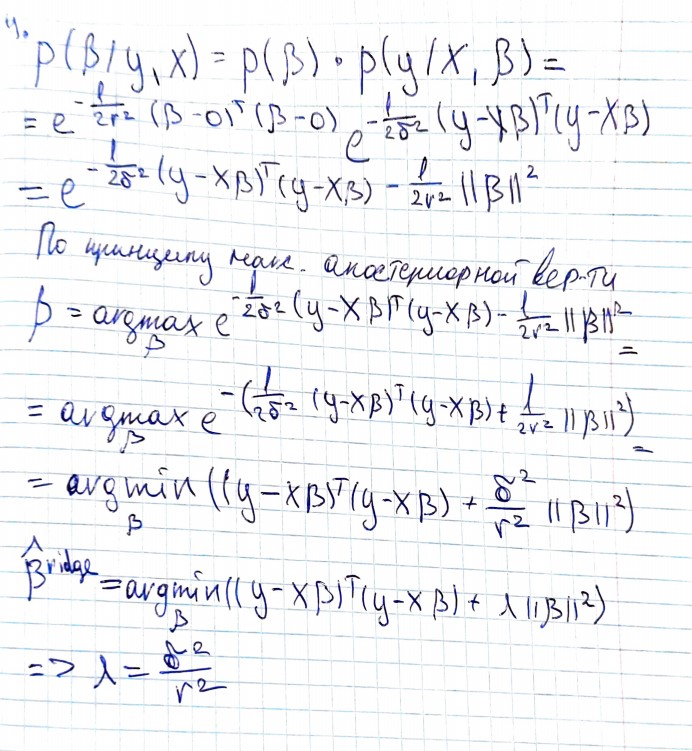 4.
p(β/y, x) = p(β) · p(y/X, β) =
= e^{-\frac{1}{2r²}(β-0)ᵀ(β-0)} e^{-\frac{1}{2σ²}(y-Xβ)ᵀ(y-Xβ)}
= e^{-\frac{1}{2σ²}(y-Xβ)ᵀ(y-Xβ) - \frac{1}{2r²}||β||²}
По принципу макс. апостериорной вер-ти
β = argmax_β e^{-\frac{1}{2σ²}(y-Xβ)ᵀ(y-Xβ) - \frac{1}{2r²}||β||²} =
= argmax_β e^{-(\frac{1}{2σ²}(y-Xβ)ᵀ(y-Xβ) + \frac{1}{2r²}||β||²)} =
= argmin_β ((y-Xβ)ᵀ(y-Xβ) + \frac{σ²}{r²}||β||²)
β̂^{ridge} = argmin_β ((y-Xβ)ᵀ(y-Xβ) + λ||β||²)
=> λ = \frac{σ²}{r²}